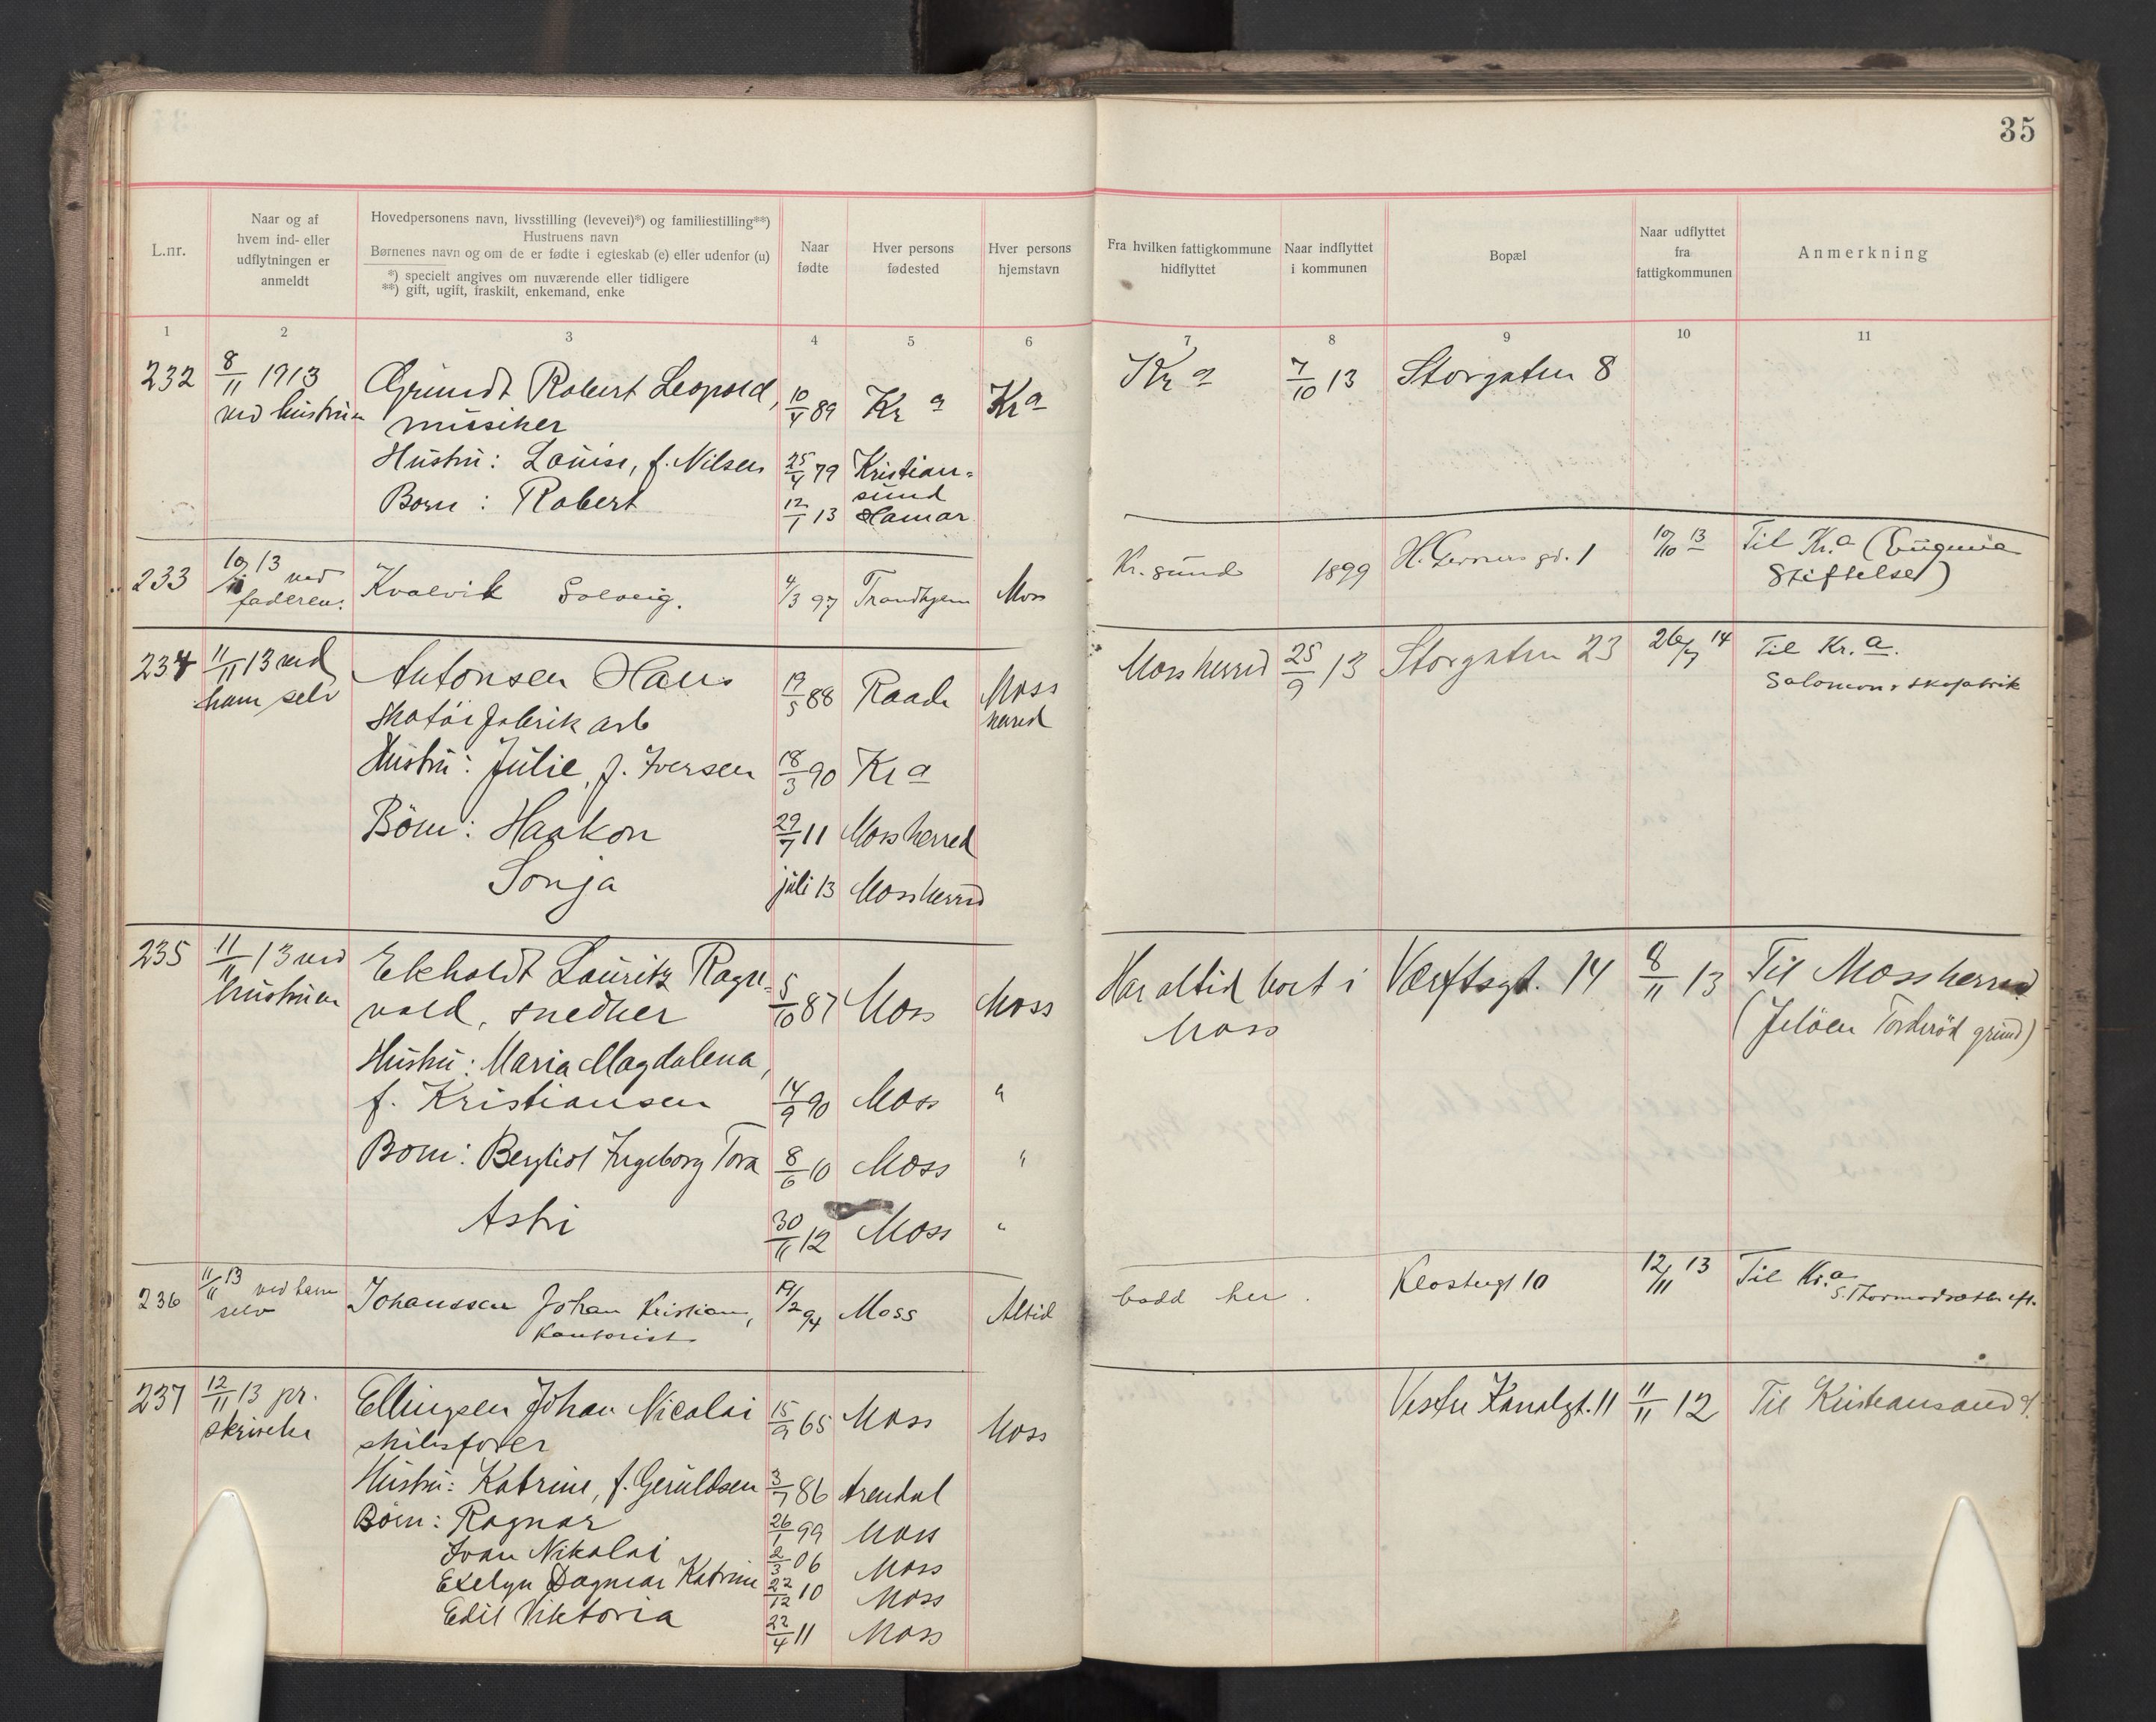 35
L.nr.
Naar og af
hvem ind- eller
udflytningen er
anmeldt
Hovedpersonens navn, livsstilling (levevei)*) og familiestilling**)
Hustruens navn
Børnenes navn og om de er fødte i egteskab (e) eller udenfor (u)
*) specielt angives om nuværende eller tidligere
**) gift, ugift, fraskilt, enkemand, enke
Naar
fødte
Hver persons
fødested
Hver persons
hjemstavn
Fra hvilken fattigkommune
hidflyttet
Naar indflyttet
i kommunen
Bopæl
Naar udflyttet
fra
fattigkommunen
Anmerkning
1 2 3 4 5 6 7 8 9 10 11
232 8/11 1913 Grundt Robert Leopold, 10/4 89 Kra Kra Kra 7/10 13 Storgaten 8
ved hustruen musiker
Hustru: Louise, f. Nilsen 25/4 79 Kristian-
sund
Born: Robert 12/1 13 Hamar
233 10/13 ved Kvalvik Solveig. 4/3 97 Trondhjem Moss Kr.sund 1899 H. Gerners gd. 1 10/10 13 Til Kr.a (Eugenia
faderen. Stiftelse)
234 11/11 13 ved Antonsen Hans 19/5 88 Raade Moss Moss herred 25/9 13 Storgaten 23 26/7 14 Til Kr.a.
ham selv skotöifabrik arb herred Salomons skofabrik
Hustru: Julie, f. Iversen 18/3 90 Kra
Börn: Haakon 29/7 11 Moss herred
Sonja juli 13 Moss herred
235 11/11 13 ved Ekholdt Lauritz Ragn- 5/10 87 Moss Moss Har altid boet i Værftsgt. 14 8/11 13 Til Moss herred
hustruen vald, snedker Moss (Jelöen Torderöd grund)
Hustru: Maria Magdalena,
f. Kristiansen 14/9 90 Moss "
Born: Bergliot Ingeborg Tora 8/6 10 Moss "
Astri 30/11 12 Moss "
236 11/11 13 ved ham Johanssen Johan Kristian, 19/2 94 Moss Altid bodd her. Klostergt 10 12/11 13 Til Kr.a
selv Kontorist S. Thormodsæter eft.
237 12/11 13 pr. Ellingsen Johan Nicolai 15/9 65 Moss Moss Vestre Kanalgt. 11 11/11 12 Til Kristiansand
skrivelse skibsfører
Hustru: Katrine, f. Geruldsen 3/7 86 Arendal
Börn: Ragnar 26/1 99 Moss
Ivan Nikolai 2/3 06 Moss
Evelyn Dagmar Katrine 22/12 10 Moss
Edil Viktoria 22/4 11 Moss